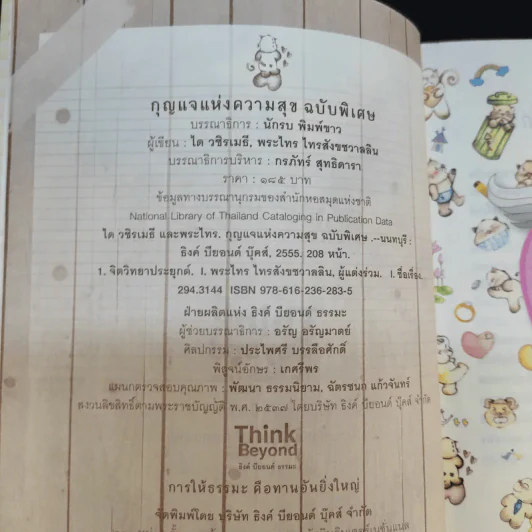 กุญแจแห่งความสุข ฉบับพิเศษ
บรรณาธิการ : นักรบ พิมพ์ขาว
ผู้เขียน : ได วชิรเมธี, พระไทร ไทรสังขชวาลลิน
บรรณาธิการบริหาร : กรภัทร์ สุทธิดารา
ราคา : ๑๘๕ บาท
ข้อมูลทางบรรณานุกรมของสำนักหอสมุดแห่งชาติ
National Library of Thailand Cataloging in Publication Data
ได วชิรเมธี และพระไทร. กุญแจแห่งความสุข ฉบับพิเศษ.--นนทบุรี :
ธิงค์ บียอนด์ บุ๊คส์, 2555. 208 หน้า.
1. จิตวิทยาประยุกต์. I. พระไทร ไทรสังขชวาลลิน, ผู้แต่งร่วม. I. ชื่อเรื่อง.
294.3144 ISBN 978-616-236-283-5
ฝ่ายผลิตแห่ง ธิงค์ บียอนด์ ธรรมะ
ผู้ช่วยบรรณาธิการ : อรัญ อรัญมาตย์
ศิลปกรรม : ประไพศรี บรรลือศักดิ์
พิสูจน์อักษร : เกศรีพร
แผนกตรวจสอบคุณภาพ : พัฒนา ธรรมนิยาม, ฉัตรชนก แก้วจันทร์
สงวนลิขสิทธิ์ตามพระราชบัญญัติ พ.ศ. ๒๕๓๗ โดยบริษัท ธิงค์ บียอนด์ บุ๊คส์ จำกัด
Think
Beyond
ธิงค์ บียอนด์ ธรรมะ
การให้ธรรมะ คือทานอันยิ่งใหญ่
จัดพิมพ์โดย บริษัท ธิงค์ บียอนด์ บุ๊คส์ จำกัด